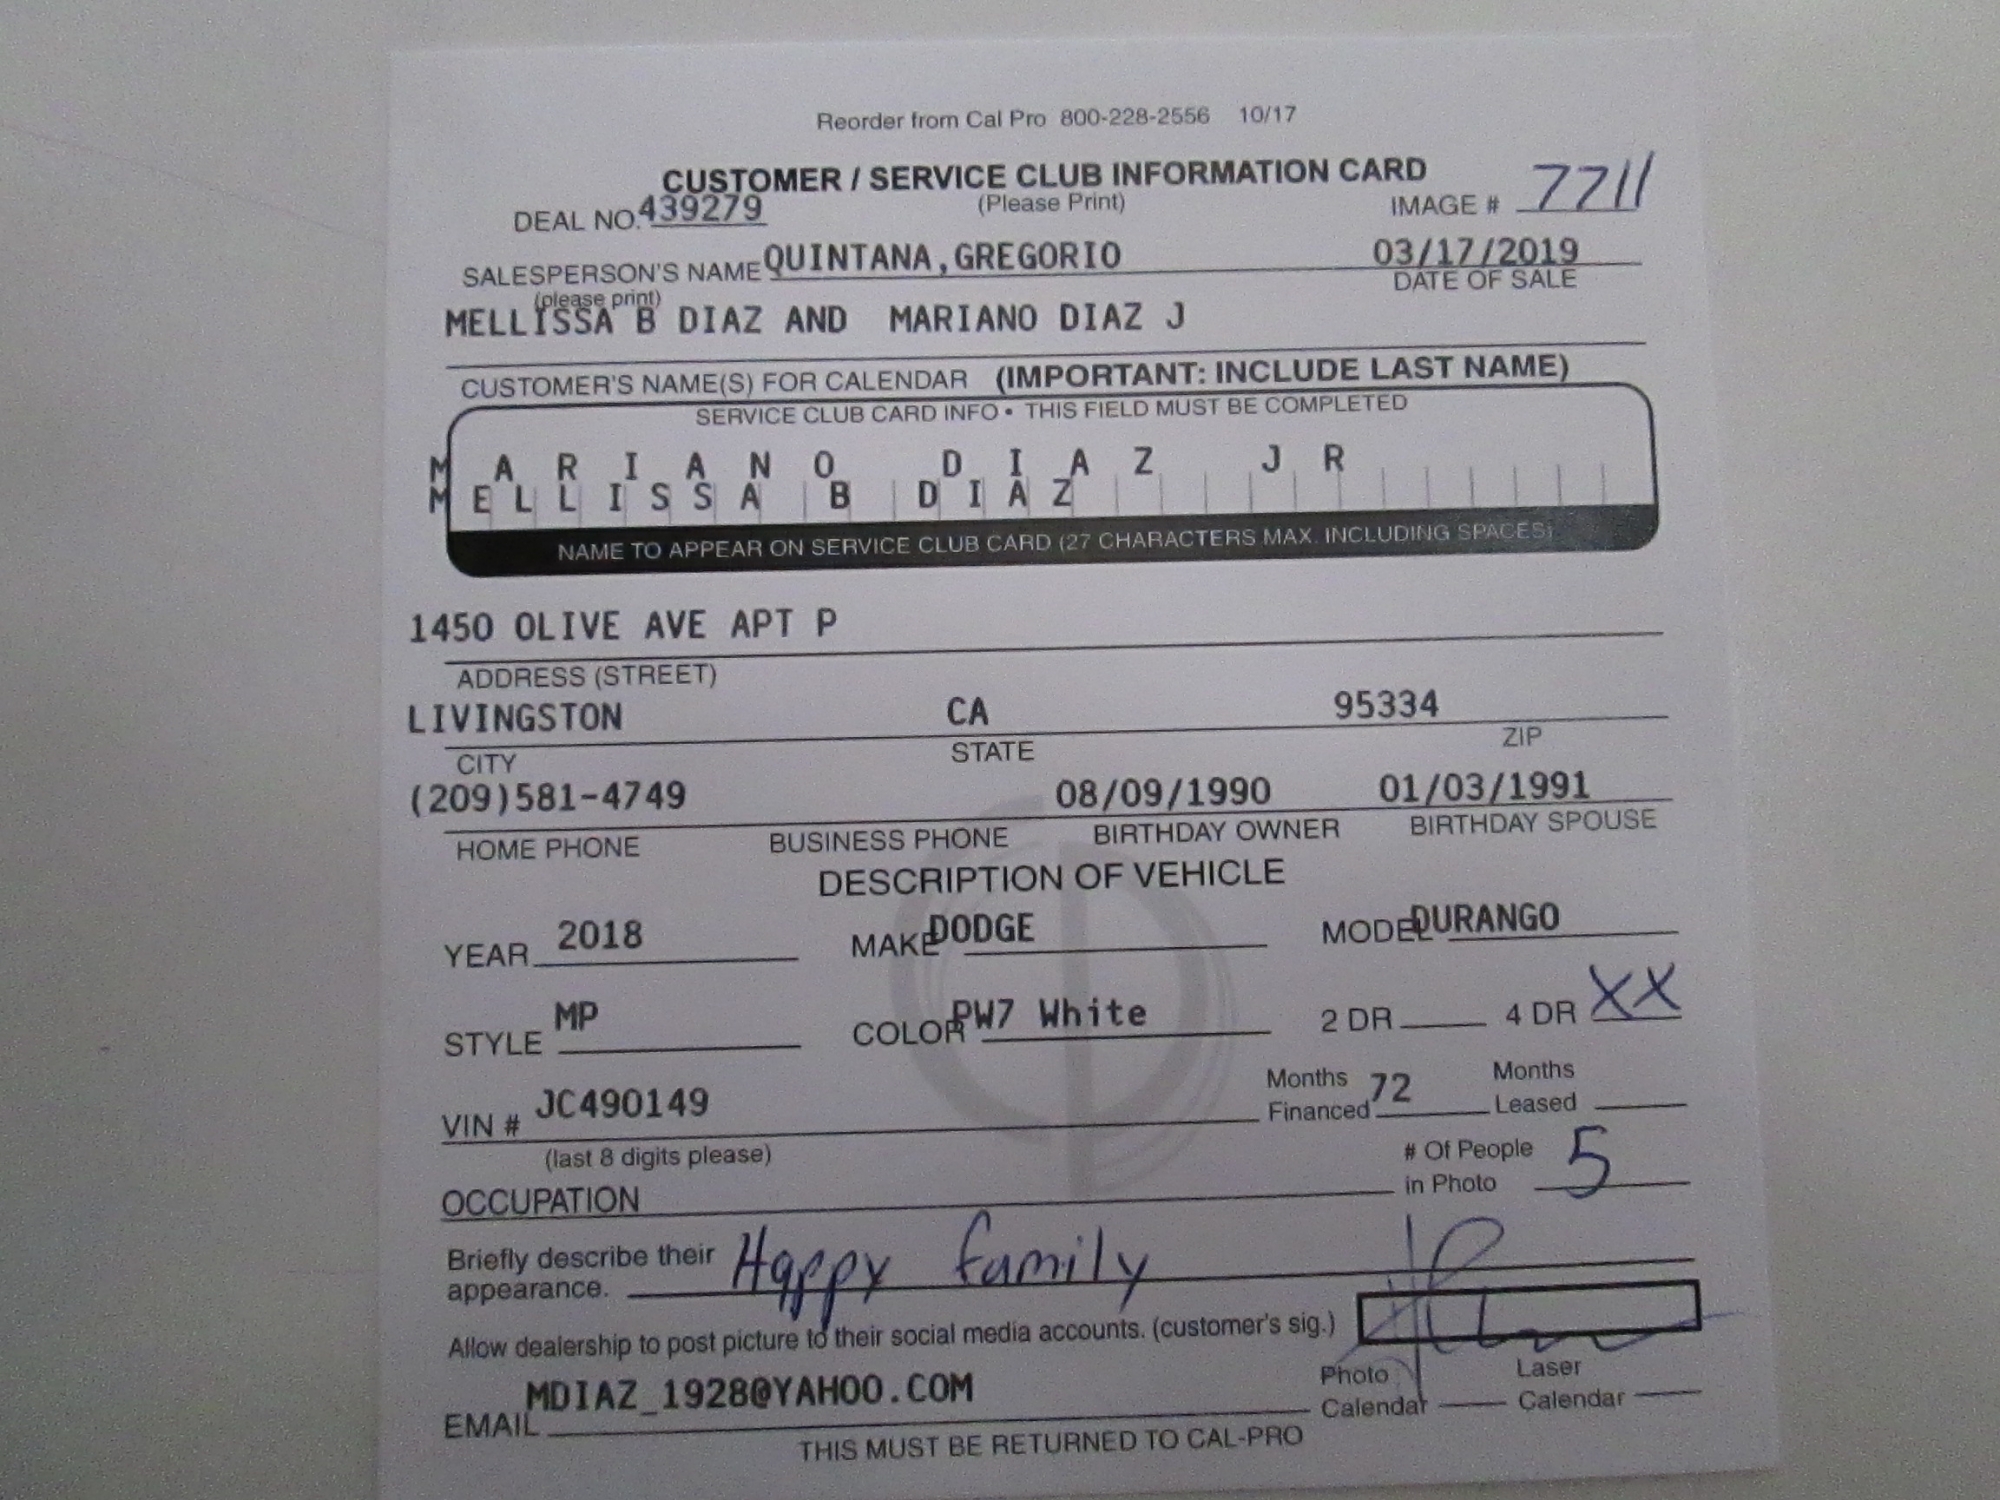 Reorder from Cal Pro 800-228-2556 10/17
CUSTOMER / SERVICE CLUB INFORMATION CARD
(Please Print)
DEAL NO. 439279 IMAGE # 7711
SALESPERSON'S NAME QUINTANA,GREGORIO 03/17/2019
(please print) DATE OF SALE
MELLISSA B DIAZ AND MARIANO DIAZ J
CUSTOMER'S NAME(S) FOR CALENDAR (IMPORTANT: INCLUDE LAST NAME)
SERVICE CLUB CARD INFO • THIS FIELD MUST BE COMPLETED
MARIANO DIAZ JR
MELLISSA B DIAZ
NAME TO APPEAR ON SERVICE CLUB CARD (27 CHARACTERS MAX. INCLUDING SPACES)
1450 OLIVE AVE APT P
ADDRESS (STREET)
LIVINGSTON CA 95334
CITY STATE ZIP
(209)581-4749 08/09/1990 01/03/1991
HOME PHONE BUSINESS PHONE BIRTHDAY OWNER BIRTHDAY SPOUSE
DESCRIPTION OF VEHICLE
YEAR 2018 MAKE DODGE MODEL DURANGO
STYLE MP COLOR PW7 White 2 DR 4 DR XX
VIN # JC490149 Months Financed 72 Months Leased
(last 8 digits please)
OCCUPATION # Of People in Photo 5
Briefly describe their appearance. Happy family
Allow dealership to post picture to their social media accounts. (customer's sig.)
EMAIL MDIAZ_1928@YAHOO.COM Photo Calendar Laser Calendar
THIS MUST BE RETURNED TO CAL-PRO